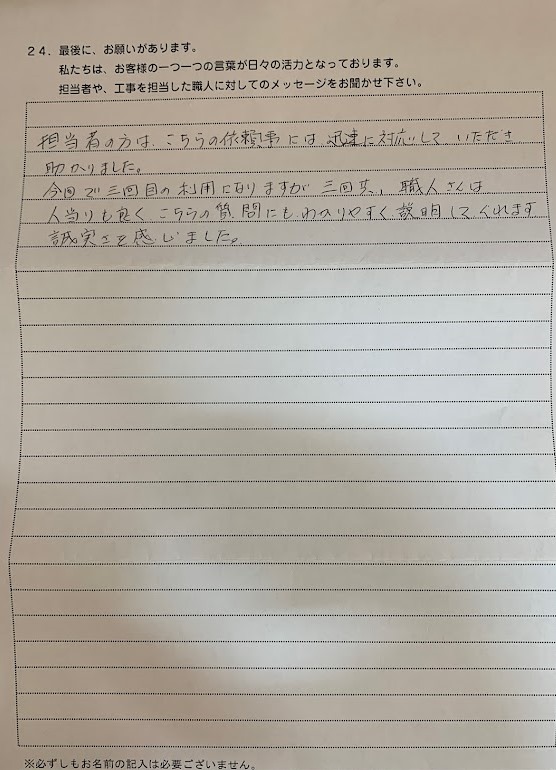 24. 最後に、お願いがあります。
私たちは、お客様の一つ一つの言葉が日々の活力となっております。
担当者や、工事を担当した職人に対してのメッセージをお聞かせ下さい。
担当者の方は、こちらの依頼事には迅速に対応して いただき
助かりました。
今回で三回目の利用になりますが 三回共、職人さんは
人当りも良く こちらの質問にもわかりやすく説明してくれます
誠実さを感じました。
※必ずしもお名前の記入は必要ございません。